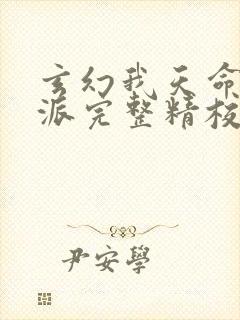 玄幻我天命
派完整精校
尹安學